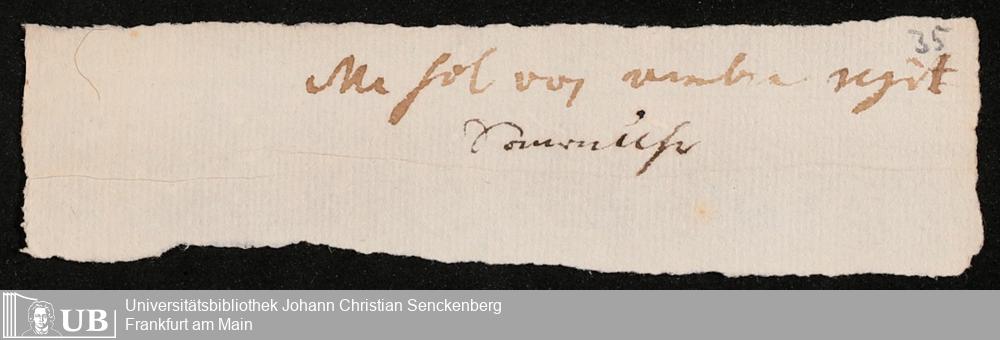 35
Me sol vos umbra regit
Sonnen Uhr
Universitätsbibliothek Johann Christian Senckenberg
Frankfurt am Main
UB